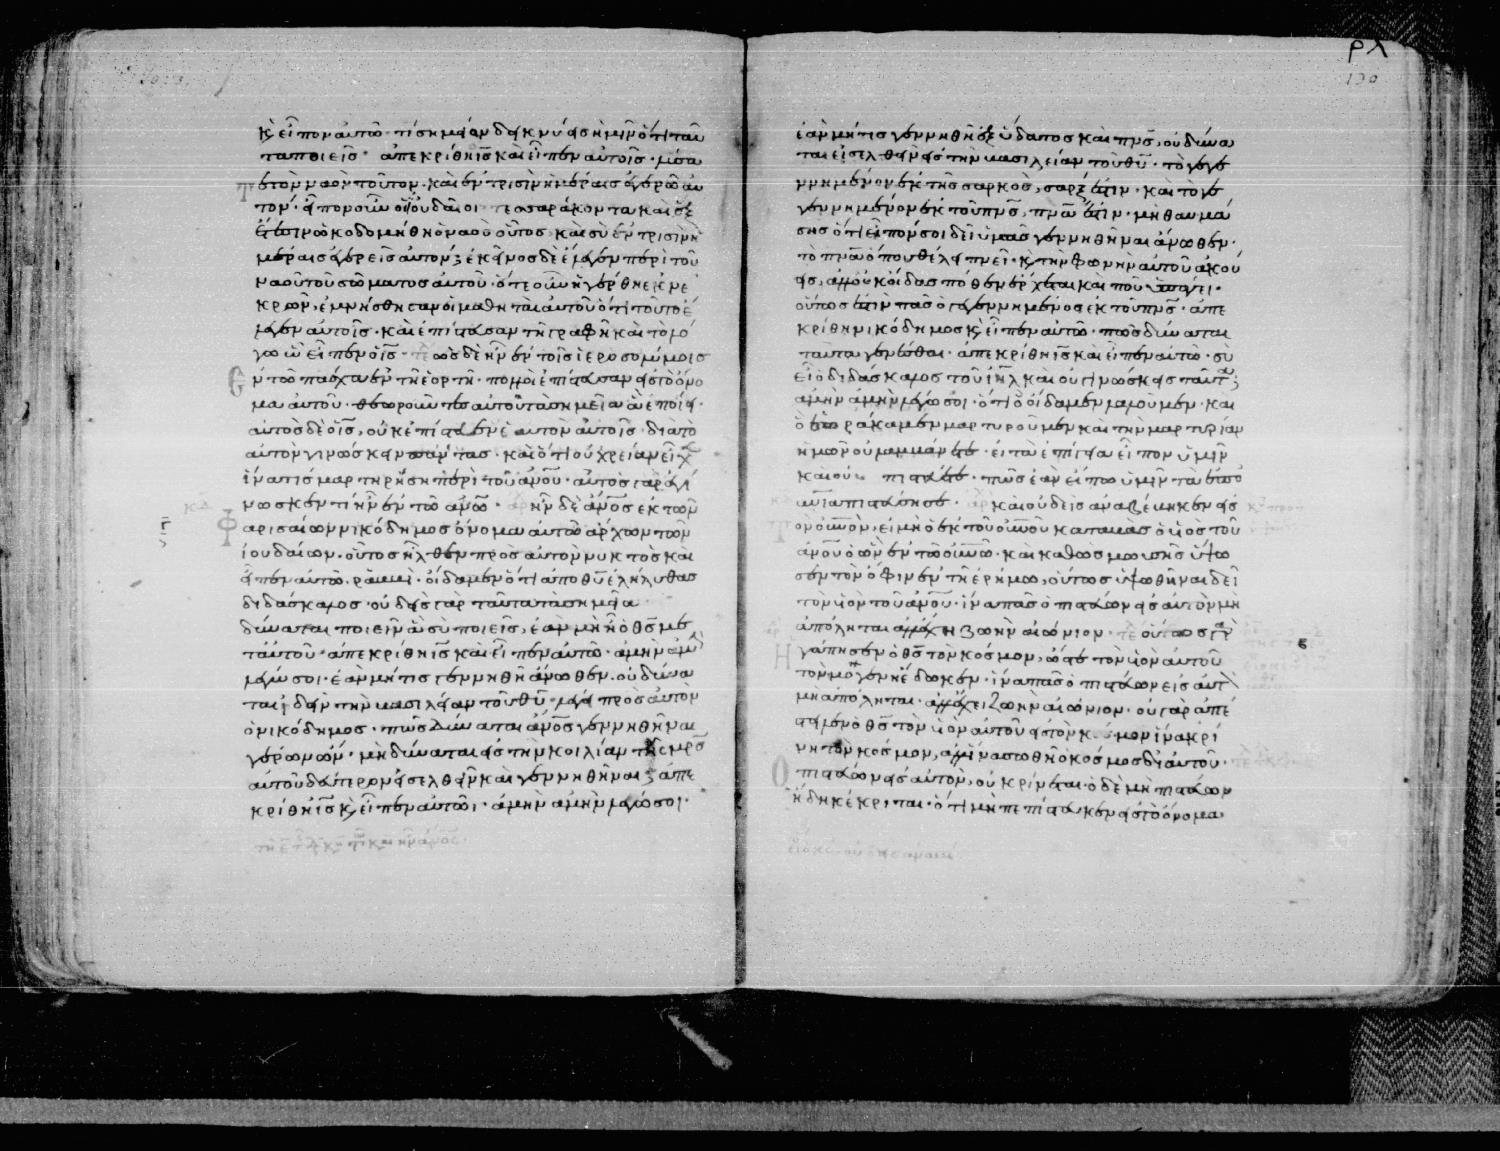 κ(αὶ) εἶπον αὐτῶ· τί σημεῖον δεικνύεις ἡμῖν ὅτι ταῦ
τα ποιεῖς· ἀπεκρίθη ἰς καὶ εἶπεν αὐτοῖς· λύσα
τε τὸν ναὸν τοῦτον, καὶ ἐν τρισὶν ἡμέραις ἐγερῶ αὐ
τόν· εἶπον οὖν οἱ ἰουδαῖοι τεσσαράκοντα καὶ ἓξ
ἔτεσιν ὠκοδομήθη ὁ ναὸς οὗτος, καὶ σὺ ἐν τρισὶν ἡ
μέραις ἐγερεῖς αὐτόν; ἐκεῖνος δὲ ἔλεγεν περὶ τοῦ
ναοῦ τοῦ σώματος αὐτοῦ· ὅτε οὖν ἠγέρθη ἐκ νε
κρῶν, ἐμνήσθησαν οἱ μαθηταὶ αὐτοῦ ὅτι τοῦτο ἔ
λεγεν αὐτοῖς· καὶ ἐπίστευσαν τῆ γραφῆ καὶ τῶ λό
γω ὧ εἶπεν ὁ ἰς· ὡς δὲ ἦν ἐν τοῖς ἱεροσολύμοις
ἐν τῶ πάσχα ἐν τῆ ἑορτῆ· πολλοὶ ἐπίστευσαν εἰς τὸ ὄνο
μα αὐτοῦ· θεωροῦντες αὐτοῦ τὰ σημεῖα ἃ ἐποίει·
αὐτὸς δὲ ὁ ἰς, οὐκ ἐπίστευεν ἑαυτὸν αὐτοῖς· διὰ τὸ
αὐτὸν γινώσκειν πάντας· καὶ ὅτι οὐ χρείαν εἶχ
ἵνα τις μαρτηρήση περὶ τοῦ ἀνου· αὐτὸς γὰρ ἐγί
νωσκεν τί ἦν ἐν τῶ ἀνω· ἦν δὲ ἀνος ἐκ τῶν
φαρισαίων νικόδημος ὄνομα αὐτῶ ἄρχων τῶν
ἰουδαίων· οὗτος ἦλθεν πρὸς αὐτὸν νυκτὸς καὶ
εἶπεν αὐτῶ· ῥαββί· οἴδαμεν ὅτι ἀπὸ θυ ἐλήλυθας
διδάσκαλος· οὐδεὶς γὰρ ταῦτα τὰ σημεῖα
δύναται ποιεῖν ἃ σὺ ποιεῖς, ἐὰν μὴ ἦ ὁ θς με
τ αὐτοῦ· ἀπεκρίθη ἰς καὶ εἶπεν αὐτῶ· ἀμὴν ἀμὴν
λέγω σοι· ἐὰν μή τις γεννηθῆ ἄνωθεν· οὐ δύνα
ται ἰδεῖν τὴν βασιλείαν τοῦ θυ· λέγει πρὸς αὐτὸν
ὁ νικόδημος· πῶς δύναται ἀνος γεννηθῆναι
γέρων ὤν· μὴ δύναται εἰς τὴν κοιλίαν τῆς μρς
αὐτοῦ δεύτερον εἰσελθεῖν καὶ γεννηθῆναι; ἀπε
κρίθη ἰς κ(αὶ) εἶπεν αὐτῶ· ἀμὴν ἀμὴν λέγω σοι·
ρλ
130
ἐὰν μή τις γεννηθῆ ἐξ ὕδατος καὶ πνς, οὐ δύνα
ται εἰσελθεῖν εἰς τὴν βασιλείαν τοῦ θυ· τὸ γεγε
ννημένον ἐκ τῆς σαρκὸς, σάρξ ἐστιν· καὶ τὸ γε
γεννημένον ἐκ τοῦ πνς, πνα ἐστιν· μὴ θαυμά
σης ὅτι εἶπόν σοι δεῖ ὑμᾶς γεννηθῆναι ἄνωθεν·
τὸ πνα ὅπου θέλει πνεῖ· κ(αὶ) τὴν φωνὴν αὐτοῦ ἀκού
εις, ἀλλ οὐκ οἶδας πόθεν ἔρχεται καὶ ποῦ ὑπάγει·
οὕτως ἐστὶν πᾶς ὁ γεγεννημένος ἐκ τοῦ πνς· ἀπε
κρίθη νικόδημος κ(αὶ) εἶπεν αὐτῶ· πῶς δύναται
ταῦτα γενέσθαι· ἀπεκρίθη ἰς καὶ εἶπεν αὐτῶ· σὺ
εἶ ὁ διδάσκαλος τοῦ ιηλ καὶ οὐ γινώσκεις ταῦτα;
ἀμὴν ἀμὴν λέγω σοι· ὅτι ὃ οἴδαμεν λαλοῦμεν· καὶ
ὃ ἑωράκαμεν μαρτυροῦμεν καὶ τὴν μαρτυρίαν
ἡμῶν οὐ λαμβάνετε· εἰ τὰ ἐπίγεια εἶπον ὑμῖν
καὶ οὐ πιστεύετε· πῶς ἐὰν εἴπω ὑμῖν τὰ ἐπου
νια πιστεύσητε· καὶ οὐδεὶς ἀναβέβηκεν εἰς
τὸν οὐνον, εἰ μὴ ὁ ἐκ τοῦ οὐνου καταβὰς ὁ υἱὸς τοῦ
ἀνου ὁ ὢν ἐν τῶ οὐνω· καὶ καθὼς μωυσῆς ὕψω
σεν τὸν ὄφιν ἐν τῆ ἐρήμω, οὕτως ὑψωθῆναι δεῖ
τὸν υἱὸν τοῦ ἀνου· ἵνα πᾶς ὁ πιστεύων εἰς αὐτὸν μὴ
ἀπόληται ἀλλ ἔχη ζωὴν αἰώνιον· οὕτως γὰρ
ἠγάπησεν ὁ θς τὸν κόσμον, ὥστε τὸν υἱὸν αὐτοῦ
τὸν μονογενῆ ἔδωκεν· ἵνα πᾶς ὁ πιστεύων εἰς αὐτ
μὴ ἀπόληται· ἀλλ ἔχει ζωὴν αἰώνιον· οὐ γὰρ ἀπέ
στειλεν ὁ θς τὸν υἱὸν αὐτοῦ εἰς τὸν κόσμον ἵνα κρί
νη τὸν κόσμον, ἀλλ ἵνα σωθῆ ὁ κόσμος δι αὐτοῦ·
Ὁ πιστεύων εἰς αὐτὸν, οὐ κρίνεται· ὁ δὲ μὴ πιστεύων
ἤδη κέκριται· ὅτι μὴ πεπίστευκεν εἰς τὸ ὄνομα